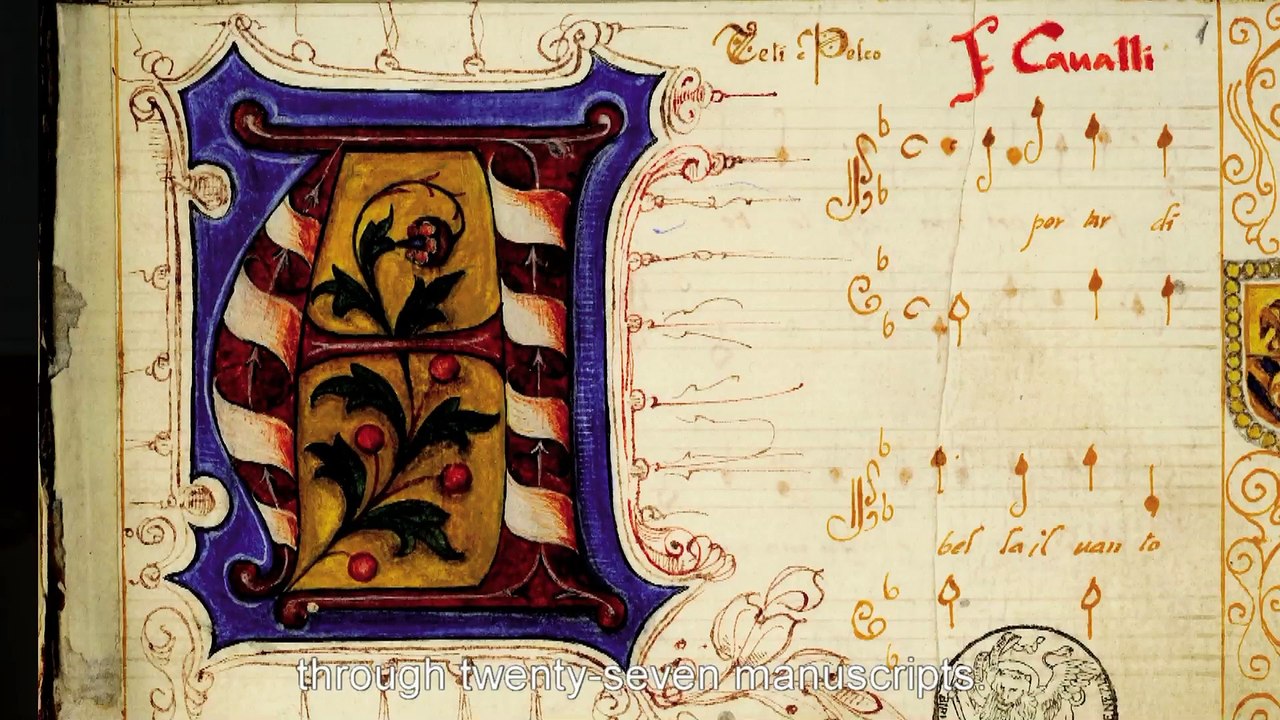 Teti e Peleo
F Caualli
1
A
por tar di
bel la il uan to
through twenty-seven manuscripts